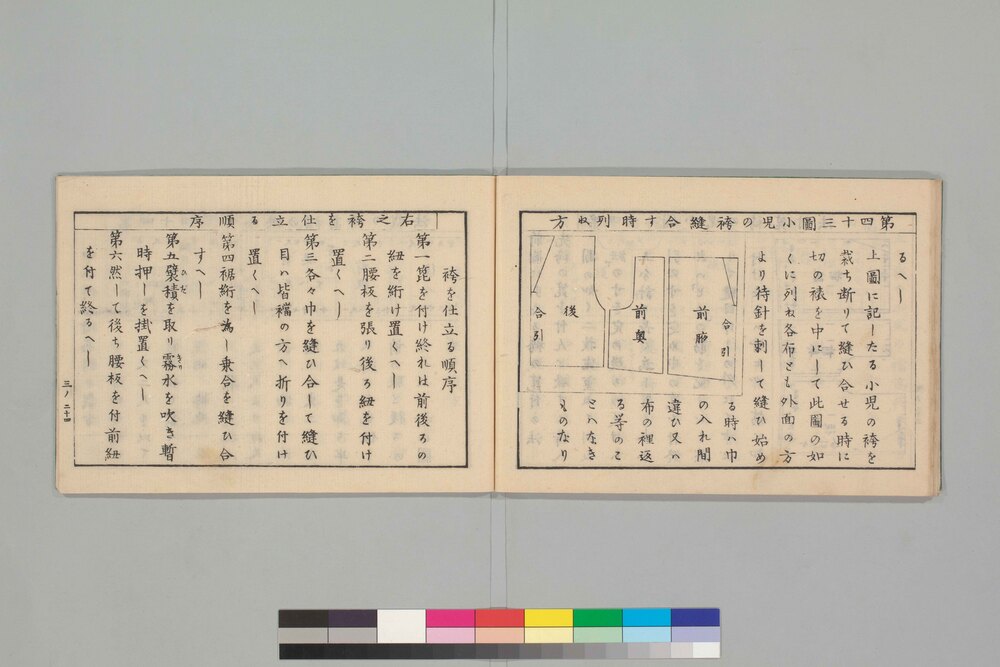 第四十三圖小児の袴縫合す時列ね方
るへし
上圖に記したる小児の袴を
裁ち断りて縫ひ合せる時に
切の裱を中にして此圖の如
くに列ね各布とも外面の方
より待針を刺して縫ひ始め
る時ハ巾
の入れ間
違ひ又ハ
布の裡返
る等のこ
とハなき
ものなり
合引
前脇
前奥
後
合引
右之袴を仕立る順序
袴を仕立る順序
第一箆を付け終れは前後ろの
紐を絎け置くへし
第二腰板を張り後ろ紐を付け
置くへし
第三各々巾を縫ひ合して縫ひ
目ハ皆襠の方へ折りを付け
置くへし
第四裾絎を為し乗合を縫ひ合
すへし
第五襞積を取り霧水を吹き暫
ひだ
きり
時押しを掛置くへし
第六然して後ち腰板を付前紐
を付て終るへし
三ノ二十四